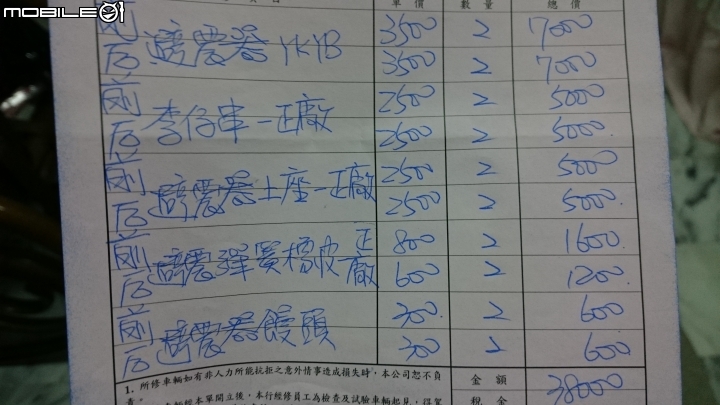 MOBILE01
單價 數量 總價
前 避震器 KYB 3500 2 7000
后 3500 2 7000
前 李仔串-正廠 2500 2 5000
后 2500 2 5000.
前 避震器上座-正廠 2500 2 5000
后 2500 2 5000.
前 避震彈簧橡皮 正廠 800 2 1600.
后 600 2 1200.
前 避震器饅頭 300. 2 600
后 300 2 600.
1. 所修車輛如有非人力所能抗拒之意外情事造成損失時,本公司恕不負責。
金額 38000
車輛經本單開立後,本行經修員工為檢查及試驗車輛起見,得駕
稅金